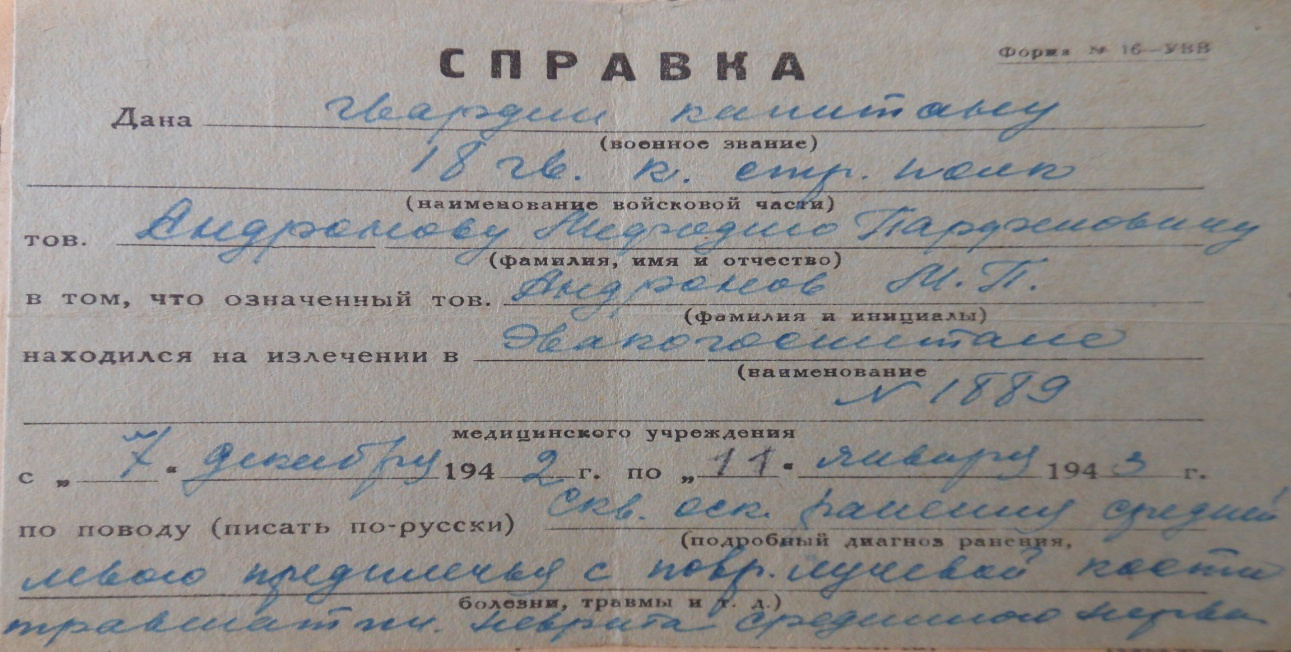 Форма № 16—УВВ
СПРАВКА
Дана гвардии капитану
(военное звание)
18 гв. к. стр. полк
(наименование войсковой части)
тов. Андронову Мефодию Парфеновичу
(фамилия, имя и отчество)
в том, что означенный тов. Андронов М.П.
(фамилия и инициалы)
находился на излечении в Эвакогоспитале
(наименование
N 1889
медицинского учреждения
с „ 7 “ декабря 1942 г. по „11“ января 1943 г.
по поводу (писать по-русски) Скв. оск. ранения средней
(подробный диагноз ранения,
левого предплечья с повр. лучевой кости
болезни, травмы и т. д.)
неврита срединного нерва